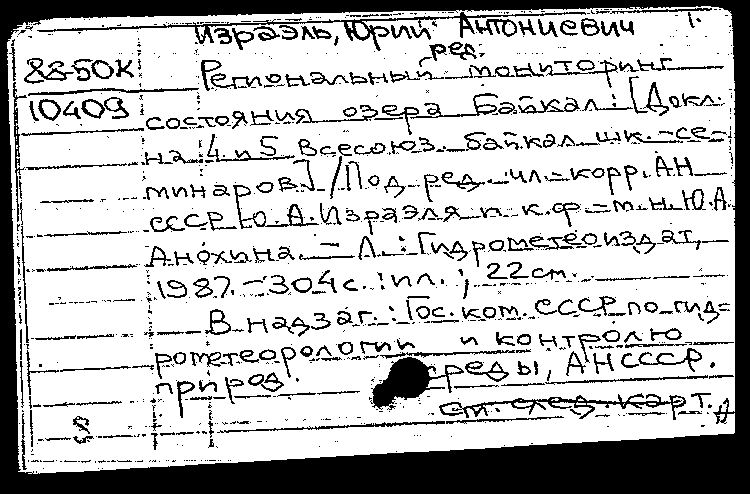 Израэль, Юрий Антониевич 1.
ред.
88-50К Региональный мониторинг
10409 состояния озера Байкал: [Докл.
на 4 и 5 Всесоюз. байкал. шк.-се-
минаров] / Под ред. чл.-корр. АН
СССР Ю.А. Израэля и к.ф.-м.н. Ю.А.
Анохина. - Л.: Гидрометеоиздат,
1987. - 304 с.: ил.; 22 см.
В надзаг.: Гос. ком. СССР по гид-
рометеорологии и контролю
природ. среды, АН СССР.
См. след. карт.